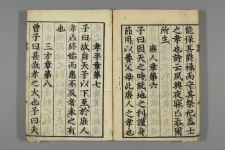 能保其爵祿而守其祭祀蓋士
之孝也詩云夙興夜寐亡忝爾
所生
庶人章第六
子曰因天之時就地之利謹身
節用以養父母此庶人之孝也
孝平章第七
子曰故自天子以下至於庶人
孝亡終始而患不及者未之有
也
三才章第八
曾子曰甚哉孝之大也子曰夫